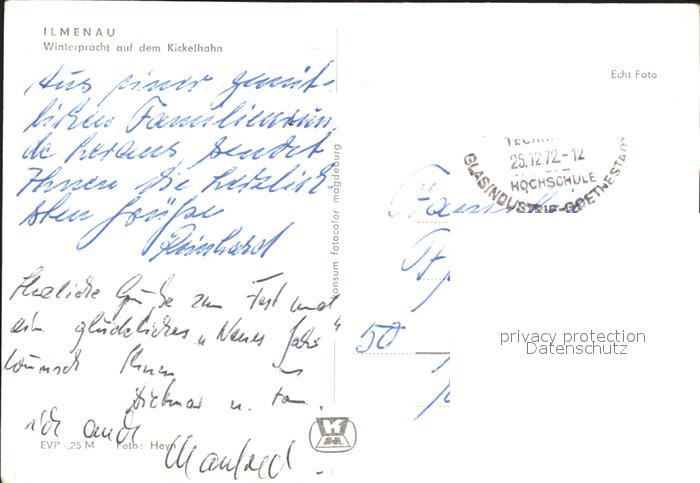 ILMENAU
Winterpracht auf dem Kickelhahn
Echt Foto
Aus einer gemüt-
lichen Familienrun-
de heraus sendet
Ihnen die herzlich
sten Grüße
Reinhard
Herzliche Grüße zum Fest und
ein glückliches "Neues Jahr"
wünscht Ihnen
Dietmar u. Fam.
ich auch
Manfred
EVP -,25 M Foto: Heyn
konsum fotocolor magdeburg
25.12.72-12
HOCHSCHULE
GLASINDUSTRIE-GOETHESTADT
Familie
50
privacy protection
Datenschutz